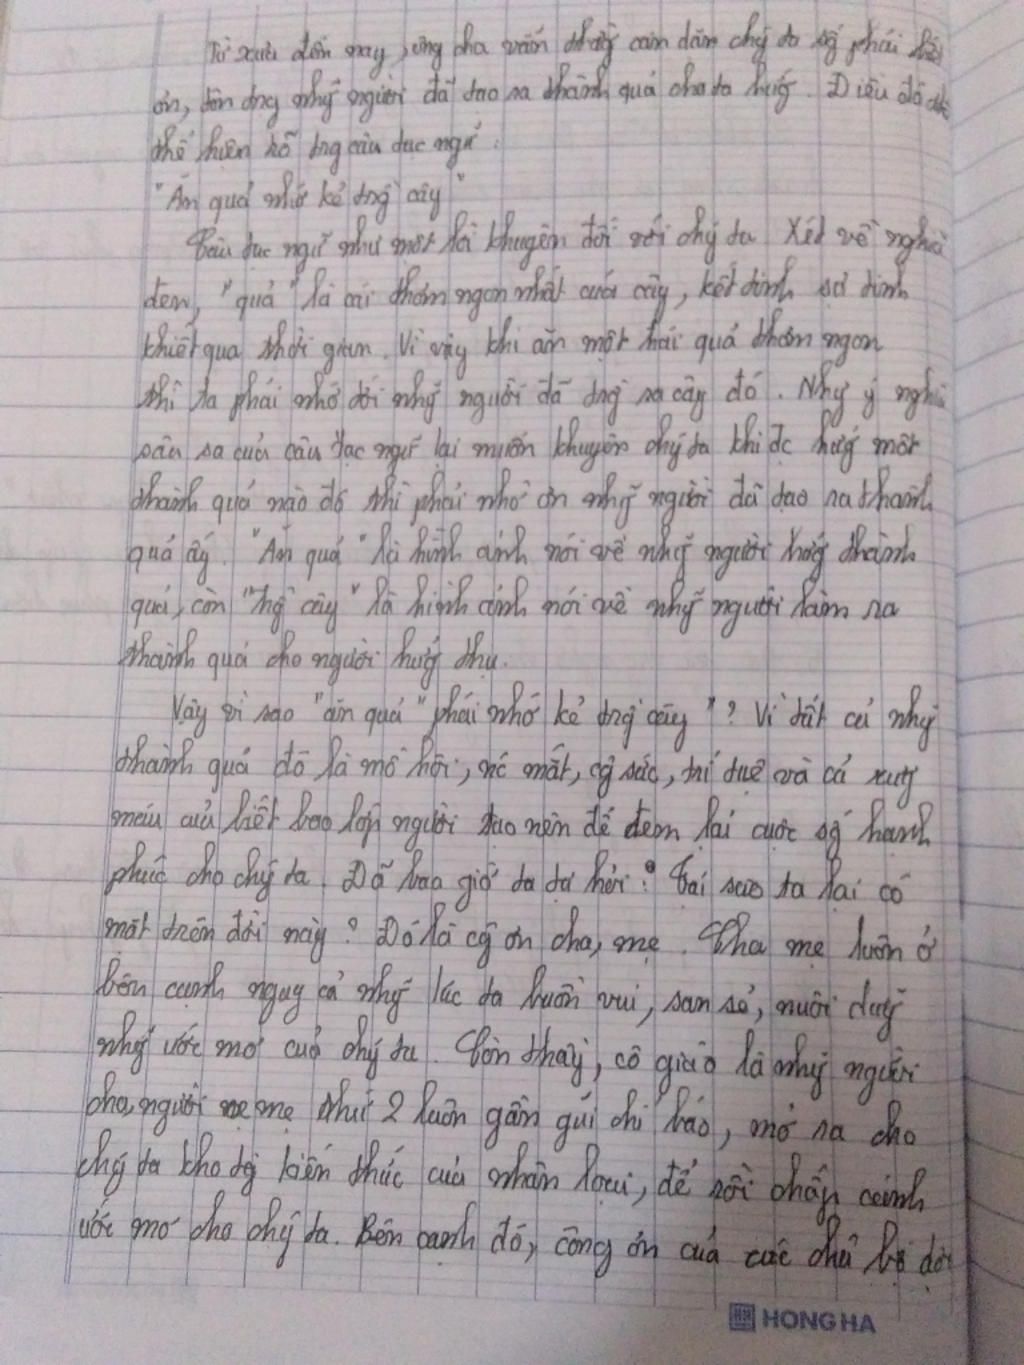 Từ xưa đến nay, ông cha vẫn thườg căn dặn chúg ta sốg phải biết
ơn, tôn trọg nhữg người đã tạo ra thành quả cho ta hưởg. Điều đó đc
thể hiện rõ trog câu tục ngữ:
"Ăn quả nhớ kẻ trồg cây"
Câu tục ngữ như một lời khuyên đối với chúg ta. Xét về nghĩa
đen, "quả" là cái thơm ngon nhất của cây, kết tinh sự tinh
khiết qua thời gian. Vì vậy khi ăn một trái quả thơm ngon
thì ta phải nhớ tới nhữg người đã trồg ra cây đó. Nhưg ý nghĩa
sâu sa của câu tục ngữ lại muốn khuyên chúg ta khi đc hưởg một
thành quả nào đó thì phải nhớ ơn nhữg người đã tạo ra thành
quả ấy. "Ăn quả" là hình ảnh nói về nhữg người hưởg thành
quả, còn "trồg cây" là hình ảnh nói về nhữg người làm ra
thành quả cho người hưởg thụ.
Vậy vì sao "ăn quả" phải nhớ kẻ trồg cây"? Vì tất cả nhữg
thành quả đó là mồ hôi, nc mắt, côg sức, trí tuệ và cả xươg
máu của biết bao lớp người tạo nên để đem lại cuộc sốg hạnh
phúc cho chúg ta. Đã bao giờ ta tự hỏi: Tại sao ta lại có
mặt trên đời này? Đó là côg ơn cha, mẹ. Cha mẹ luôn ở
bên cạnh ngay cả nhữg lúc ta buồn vui, san sẻ, nuôi dưỡg
nhữg ước mơ của chúg ta. Còn thầy, cô giáo là nhữg người
cha, người mẹ thứ 2 luôn gần gũi chỉ bảo, mở ra cho
chúg ta kho tàg kiến thức của nhân loại, để rồi chắp cánh
ước mơ cho chúg ta. Bên cạnh đó, công ơn của các chú bộ đội
HONG HA